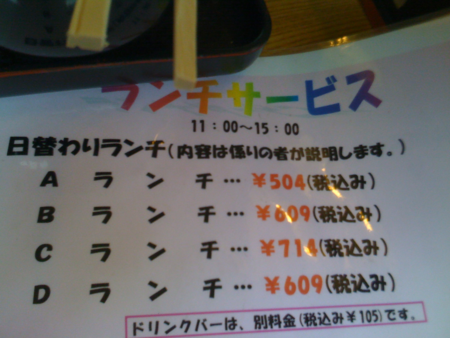 ランチサービス
11：00〜15：00
日替わりランチ(内容は係りの者が説明します。)
Aランチ…￥504(税込み)
Bランチ…￥609(税込み)
Cランチ…￥714(税込み)
Dランチ…￥609(税込み)
ドリンクバーは、別料金(税込み￥105)です。